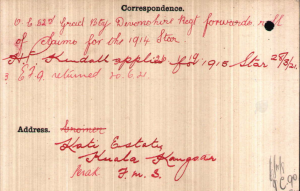 Correspondence.
O.C 52d Grad Bty Devonshire Regt forwards roll
of claims for the 1914 Star
H. Kendall applies for 1915 Star 28/3/21.
returned 20.6.21.
Address.
Kati Estate,
Kuala Kangsar
Perak F.M.S.